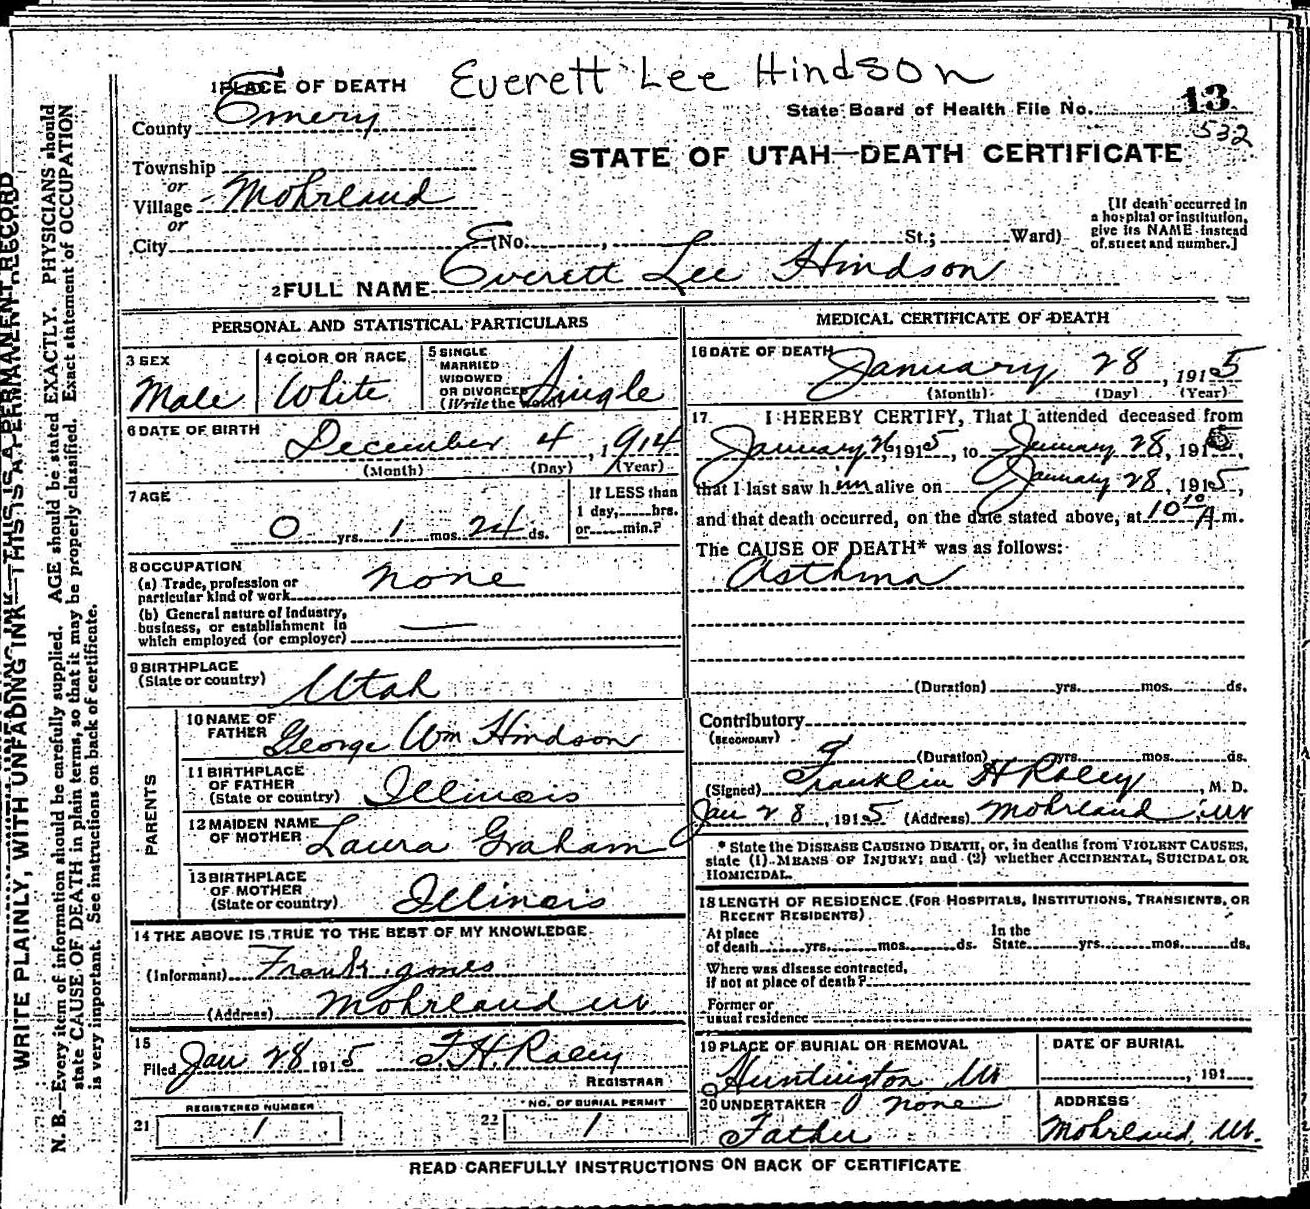 Everett Lee Hindson
1 PLACE OF DEATH
State Board of Health File No. 13
532
County Emery
STATE OF UTAH—DEATH CERTIFICATE
Township
or
Village Mohrland
or
City (No. , St.; Ward)
[If death occurred in
a hospital or institution,
give its NAME instead
of street and number.]
2 FULL NAME Everett Lee Hindson
PERSONAL AND STATISTICAL PARTICULARS
3 SEX
Male
4 COLOR OR RACE
White
5 SINGLE
MARRIED
WIDOWED
OR DIVORCED
(Write the word)
Single
6 DATE OF BIRTH
December 4, 1914
(Month) (Day) (Year)
7 AGE
0 yrs. 1 mos. 24 ds.
If LESS than
1 day, hrs.
or min.?
8 OCCUPATION
(a) Trade, profession or
particular kind of work none
(b) General nature of Industry,
business, or establishment in
which employed (or employer) —
9 BIRTHPLACE
(State or country) Utah
PARENTS
10 NAME OF
FATHER George Wm Hindson
11 BIRTHPLACE
OF FATHER
(State or country) Illinois
12 MAIDEN NAME
OF MOTHER Laura Graham
13 BIRTHPLACE
OF MOTHER
(State or country) Illinois
14 THE ABOVE IS TRUE TO THE BEST OF MY KNOWLEDGE
(Informant) Frank Jones
(Address) Mohrland Ut
15
Filed Jan 28 1915 F. H. Raley
REGISTRAR
REGISTERED NUMBER
21 1
NO. OF BURIAL PERMIT
22 1
MEDICAL CERTIFICATE OF DEATH
16 DATE OF DEATH January 28, 1915
(Month) (Day) (Year)
17. I HEREBY CERTIFY, That I attended deceased from
January 26, 1915, to January 28, 1915,
that I last saw him alive on January 28, 1915,
and that death occurred, on the date stated above, at 10 10 A m.
The CAUSE OF DEATH* was as follows:
Asthma
(Duration) yrs. mos. ds.
Contributory
(SECONDARY)
(Duration) yrs. mos. ds.
(Signed) Franklin H Raley, M. D.
Jan 28, 1915 (Address) Mohrland Ut
* State the DISEASE CAUSING DEATH, or, in deaths from VIOLENT CAUSES,
state (1) MEANS OF INJURY; and (2) whether ACCIDENTAL, SUICIDAL OR
HOMICIDAL.
18 LENGTH OF RESIDENCE (FOR HOSPITALS, INSTITUTIONS, TRANSIENTS, OR
RECENT RESIDENTS)
At place
of death yrs. mos. ds.
In the
State yrs. mos. ds.
Where was disease contracted,
if not at place of death?
Former or
usual residence
19 PLACE OF BURIAL OR REMOVAL
Huntington Ut
DATE OF BURIAL
, 191
20 UNDERTAKER none
Father
ADDRESS
Mohrland, Ut.
READ CAREFULLY INSTRUCTIONS ON BACK OF CERTIFICATE
WRITE PLAINLY, WITH UNFADING INK—THIS IS A PERMANENT RECORD
N. B.—Every item of information should be carefully supplied. AGE should be stated EXACTLY. PHYSICIANS should
state CAUSE OF DEATH in plain terms, so that it may be properly classified. Exact statement of OCCUPATION
is very important. See instructions on back of certificate.